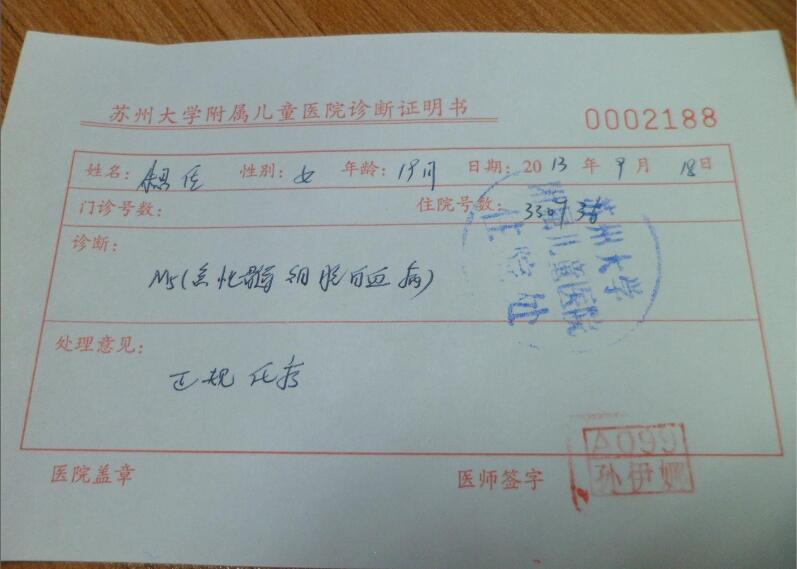 苏州大学附属儿童医院诊断证明书
0002188
姓名: 性别: 女 年龄: 日期: 2013年9月18日
门诊号数: 住院号数:
诊断:
M5(急性髓细胞白血病)
处理意见:
正规化疗
苏州大学
附属儿童医院
住院处
医院盖章 医师签字
A099
孙伊娜